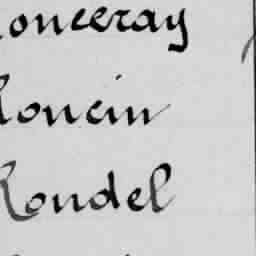 Ronceray
Roncin
Rondel